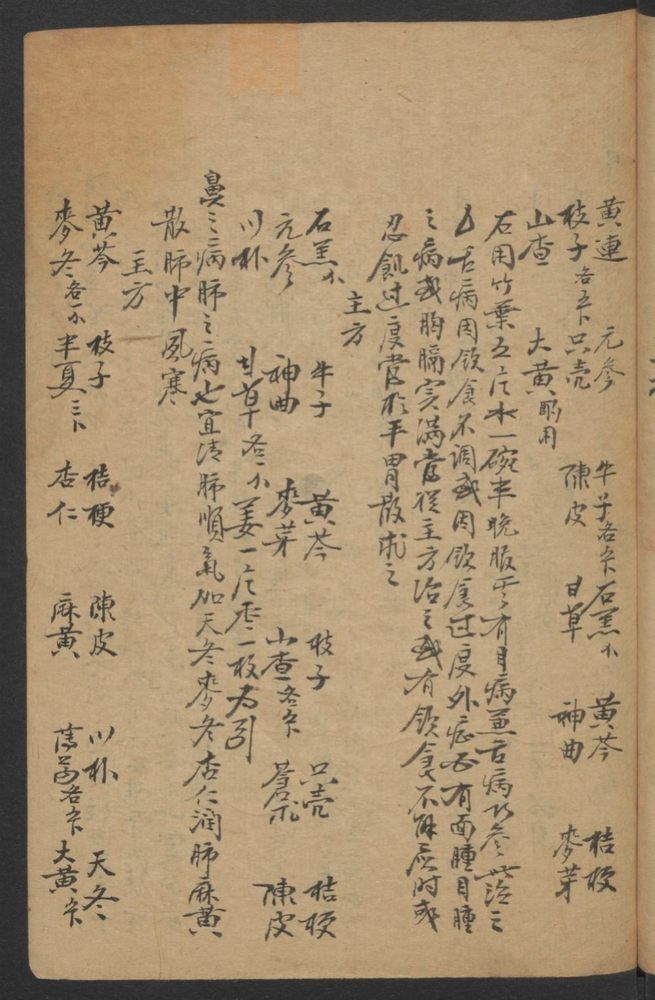 黃連 元參 牛子各 石羔 黃芩 桔梗
枝子各 只壳 陳皮 甘草 神曲 麥芽
山查 大黃酌用
右用竹葉五片水一碗半晚服 有目病兼舌病 參 治之
舌病因飲食不調或因飲食过度外症必有面腫目腫
之病或胸膈实滿當從主方治之或有飲食不 应时或
忍飢过度當於平胃散求之
主方
石羔 牛子 黃芩 枝子 只壳 桔梗
元參 神曲 麥芽 山查各 蒼朮 陳皮
川朴 甘草各一 姜一片枣二枚为引
鼻之病肺之病也宜清肺順氣加天冬麥冬杏仁润肺麻黃
散肺中風寒
主方
黃芩 枝子 桔梗 陳皮 川朴 天冬
麥冬各一 半夏三 杏仁 麻黃 各 大黃